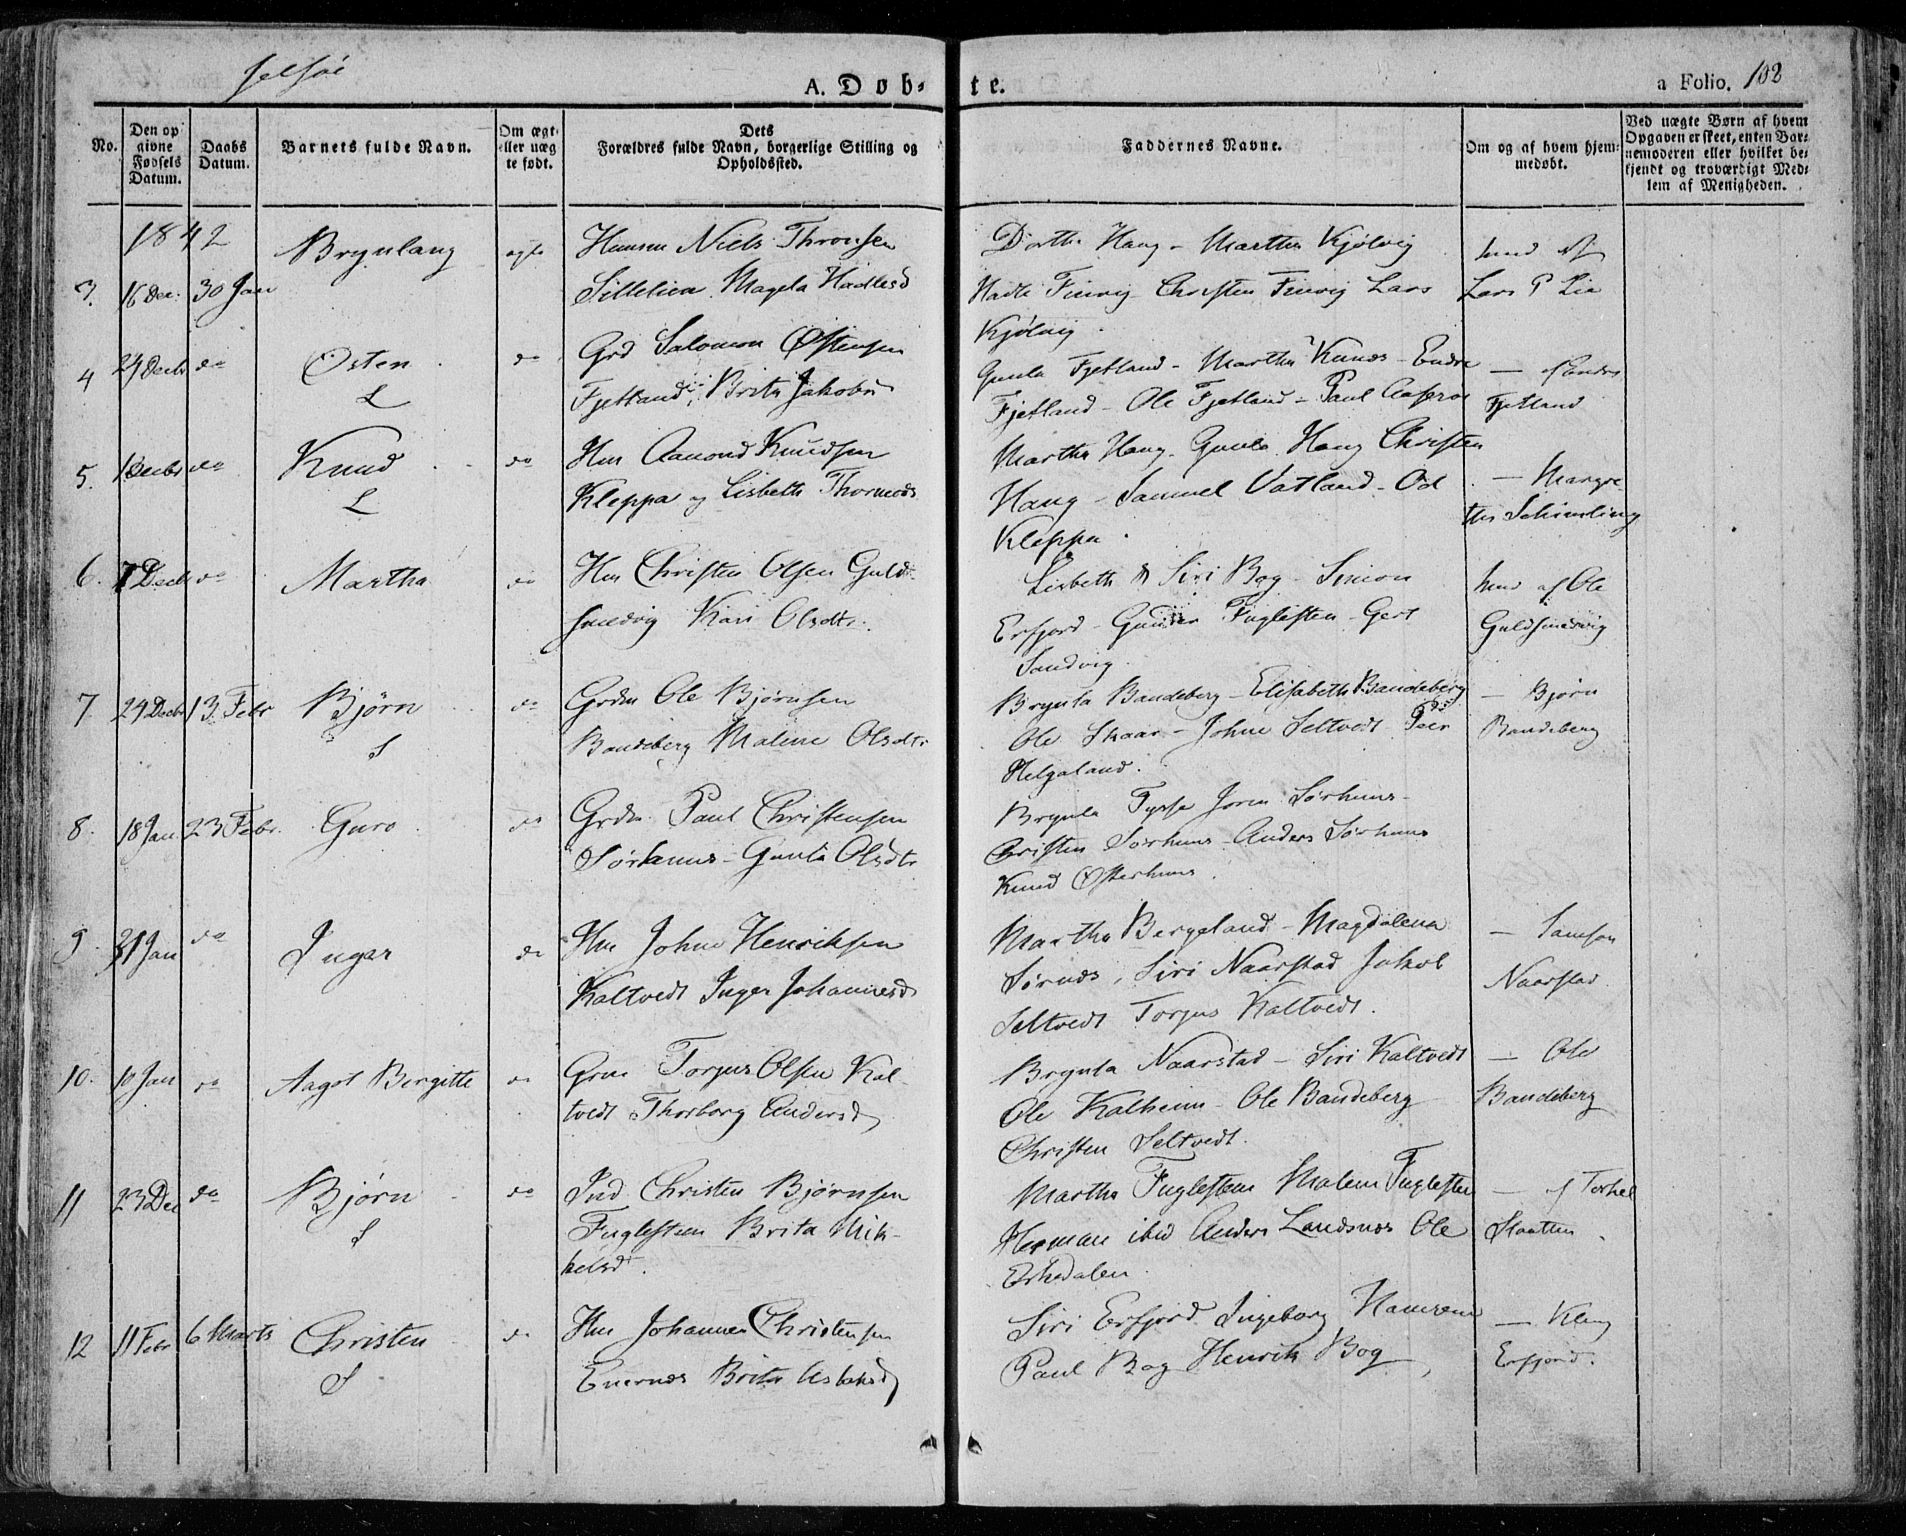 Jelsøe
A. Døb-te.
a Folio. 102
No.
Den op
givne
Fødsels
Datum.
Daabs
Datum.
Barnets fulde Navn.
Om ægt-
eller uæg
te født.
Dets
Forældres fulde Navn, borgerlige Stilling og
Opholdssted.
Faddernes Navne.
Om og af hvem hjem-
medøbt.
Ved uægte Børn af hvem
Opgaven er skeet, enten Bar-
nemoderen eller hvilket be-
kjendt og troværdigt Med-
lem af Menigheden.
1842
3. 16 Dec. 30 Jan Brynlang ægte
Niels Thronsen
Magela
Dorthe Haug - Martha Kjølvig
Finvig Christen Finvig Lars
Kjølvig.
hmd af
Lars P Lie
4 29 Decbr do Østen do
L
Grd Salomon Østensen
Fjetland, Brita Jakobs
Gunla Fjetland - Martha - Endre
Fjetland - Ole Fjetland - Paul
— af Endre
Fjetland
5. Decbr do Knud do
L
Hm Aamond Knudsen
Kleppa og Lisbeth Thormods
Martha Haug - Gunla Haug Christen
Haug - Samuel Vatland - Od
Kleppa.
— Margre-
tha
6. 7 Decb do Martha do
Hm Christen Olsen Guld-
Kari Olsdtr.
Lisbeth & Siri Bog - Simon
Erfjord - Fuglesten - Gert
Sandvig.
hmd af Ole
7. 29 Decbr 13 Febr Bjørn do
S
Grdm Ole Bjørnsen
Bandeberg Malene Olsdtr
Brynla Bandeberg - Elisabeth Bandeberg
Ole Skaar - Johne Seltvedt Peer
Helgaland.
— Bjørn
Bandeberg
8. 18 Jan 23 Febr. Guro do
Grdm. Paul Christensen
Sørhuus - Gunla Olsdtr
Brynla Tysse Joren Sørhuus -
Christen Sørhuus - Anders Sørhuus
Knud Østerhuus.
9. 31 Jan do Inger do
Hm Johne Henriksen
Kaltvedt Inger Johannesd
Martha Bergeland - Magdalena
Sørnæs, Siri Naarstad Jakob
Seltvedt Torgus Kaltvedt.
— Samson
Naarstad
10. 10 Jan do Aagot Bergitte do
Grm Torgus Olsen Kal-
tvedt Thorborg Andersd
Brynla Naarstad - Siri Kaltvedt
Ole Kalheim - Ole Bandeberg
Christen Seltvedt.
— Ole
Bandeberg
11 23 Dec do Bjørn do
S
Ind. Christen Bjørnsen
Fuglesteen Brita Mik-
kelsd.
Martha Fuglesteen Malene Fuglesten
Herman ibid Anders Landsnæs Ole
— af Torkel
12 11 Febr 6 Marts Christen do
S
Hm Johannes Christensen
Brita
Siri Erfjord Ingeborg
Paul Bog Henrik Bog
— Klaug
Erfjord.